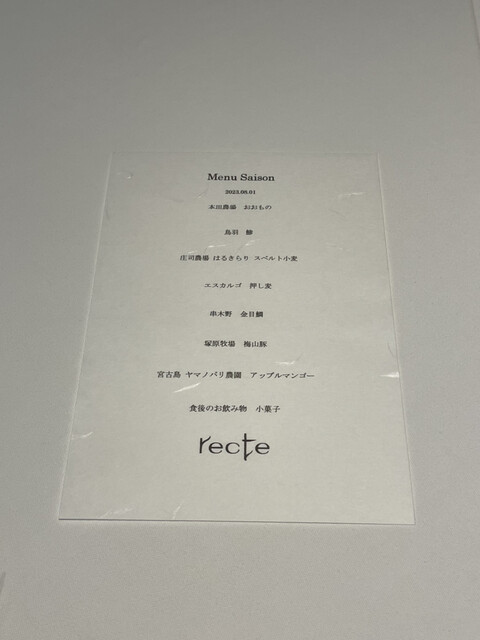 Menu Saison
2023.08.01
本田農場　おおもの
鳥羽　鯵
庄司農場 はるきらり スペルト小麦
エスカルゴ　押し麦
串木野　金目鯛
塚原牧場　梅山豚
宮古島 ヤマノパリ農園　アップルマンゴー
食後のお飲み物　小菓子
recte